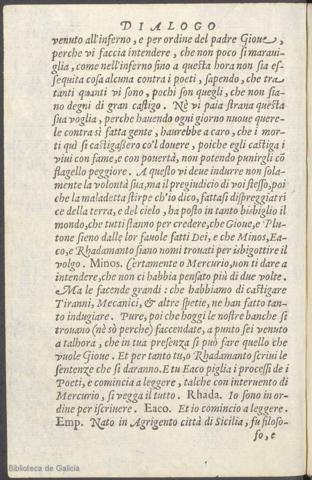 DIALOGO
venuto all'inferno, e per ordine del padre Gioue,
perche vi faccia intendere, che non poco si maraui-
glia, come nell'inferno sino a questa hora non sia es-
sequita cosa alcuna contra i poeti, sapendo, che tra
tanti quanti vi sono, pochi son quegli, che non sia-
no degni di gran castigo. Nè vi paia strana questa
sua voglia, perche hauendo ogni giorno nuoue quere-
le contra sì fatta gente, haurebbe a caro, che i mor-
ti quà si castigassero co'l douere, poiche egli castiga i
viui con fame, e con pouertà, non potendo punirgli cō
flagello peggiore. A questo vi deue indurre non sola-
mente la volontà sua, ma il pregiudicio di voi stesso, poi
che la maladetta stirpe ch'io dico, fattasi dispreggiatri
ce della terra, e del cielo, ha posto in tanto bisbiglio il
mondo, che tutti stanno per credere, che Gioue, e Plu-
tone sieno dalle lor fauole fatti Dei, e che Minos, Ea-
co, e Rhadamanto siano nomi trouati per isbigottire il
volgo. Minos. Certamente o Mercurio, non ti dare a
intendere, che non ci habbia pensato più di due volte.
Ma le facende grandi: che habbiamo di castigare
Tiranni, Mecanici, & altre spetie, ne han fatto tan-
to indugiare. Pure, poi che hoggi le nostre banche si
trouano (nè sò perche) faccendate, a punto sei venuto
a talhora, che in tua presenza si può fare quello che
vuole Gioue. Et per tanto tu, o Rhadamanto scriui le
sentenze che si daranno. Et tu Eaco piglia i processi de i
Poeti, e comincia a leggere, talche con interuento di
Mercurio, si vegga il tutto. Rhada. Io sono in or-
dine per iscriuere. Eaco. Et io comincio a leggere.
Emp. Nato in Agrigento città di Sicilia, fù filoso-
fo, e
Biblioteca de Galicia